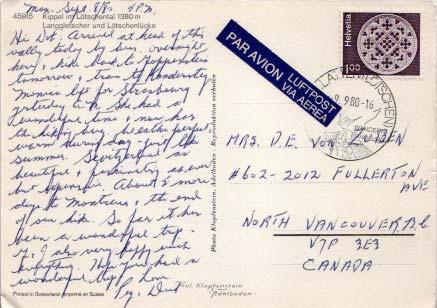 Mon. Sept. 8/80 4 P.M.
45915 Kippel im Lötschental 1380 m
Langgletscher und Lötschenlücke
Hi Dot: Arrived at head of this
valley today by bus, overnight
here, & hike back to Goppenstein
tomorrow & train to Kandersteg.
Monica left for Strasbourg
yesterday with she had a
wonderful time & now has
the hiking bug. Weather perfect,
warm during day - just like
summer. Switzerland as
beautiful & fascinating as ever
but expensive. About 5 more
days to Montreux & the end
of our hike. So far it has
been a wonderful trip
& I also very happy with
everything. Hope you had a
wonderful trip home
Photo Klopfenstein, Adelboden - Reproduktion verboten
Printed in Switzerland - Imprimé en Suisse
Phot. Klopfenstein
"Adelboden"
PAR AVION LUFTPOST
VIA AEREA
Helvetia
100
BLATTEN (LÖTSCHEN)
9.9.80-16
WANDER
MRS. D. E. VON
#602-2012 FULLERTON
AVE
NORTH VANCOUVER B.C
V7P 3E3
CANADA